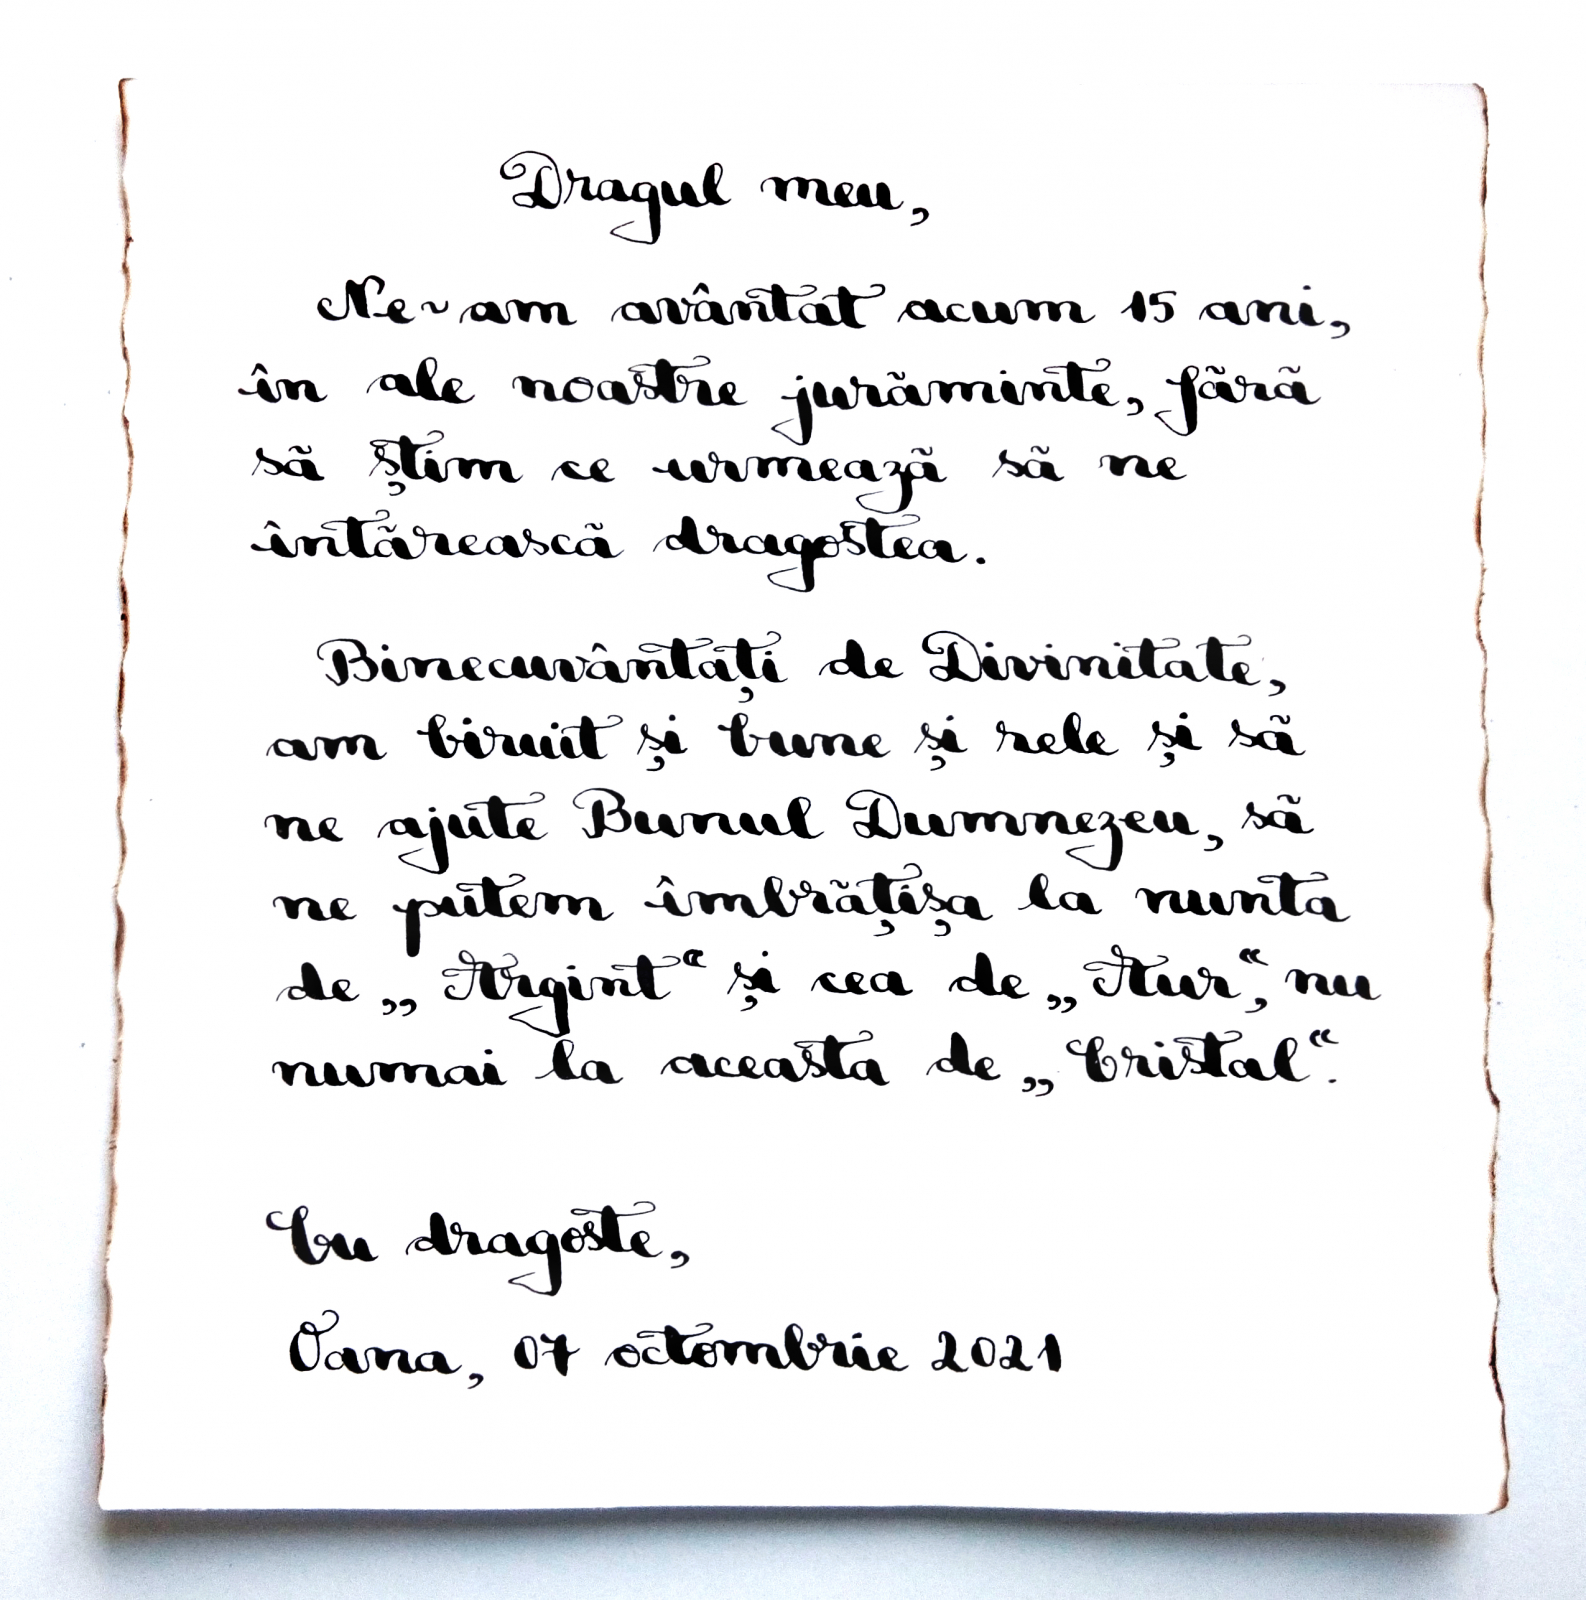 Dragul meu,
Ne-am avântat acum 15 ani,
în ale noastre jurăminte, fără
să știm ce urmează să ne
întărească dragostea.
Binecuvântați de Divinitate,
am biruit și bune și rele și să
ne ajute Bunul Dumnezeu, să
ne putem îmbrățișa la nunta
de „Argint“ și cea de „Aur“, nu
numai la aceasta de „Cristal“.
Cu dragoste,
Oana, 07 octombrie 2021